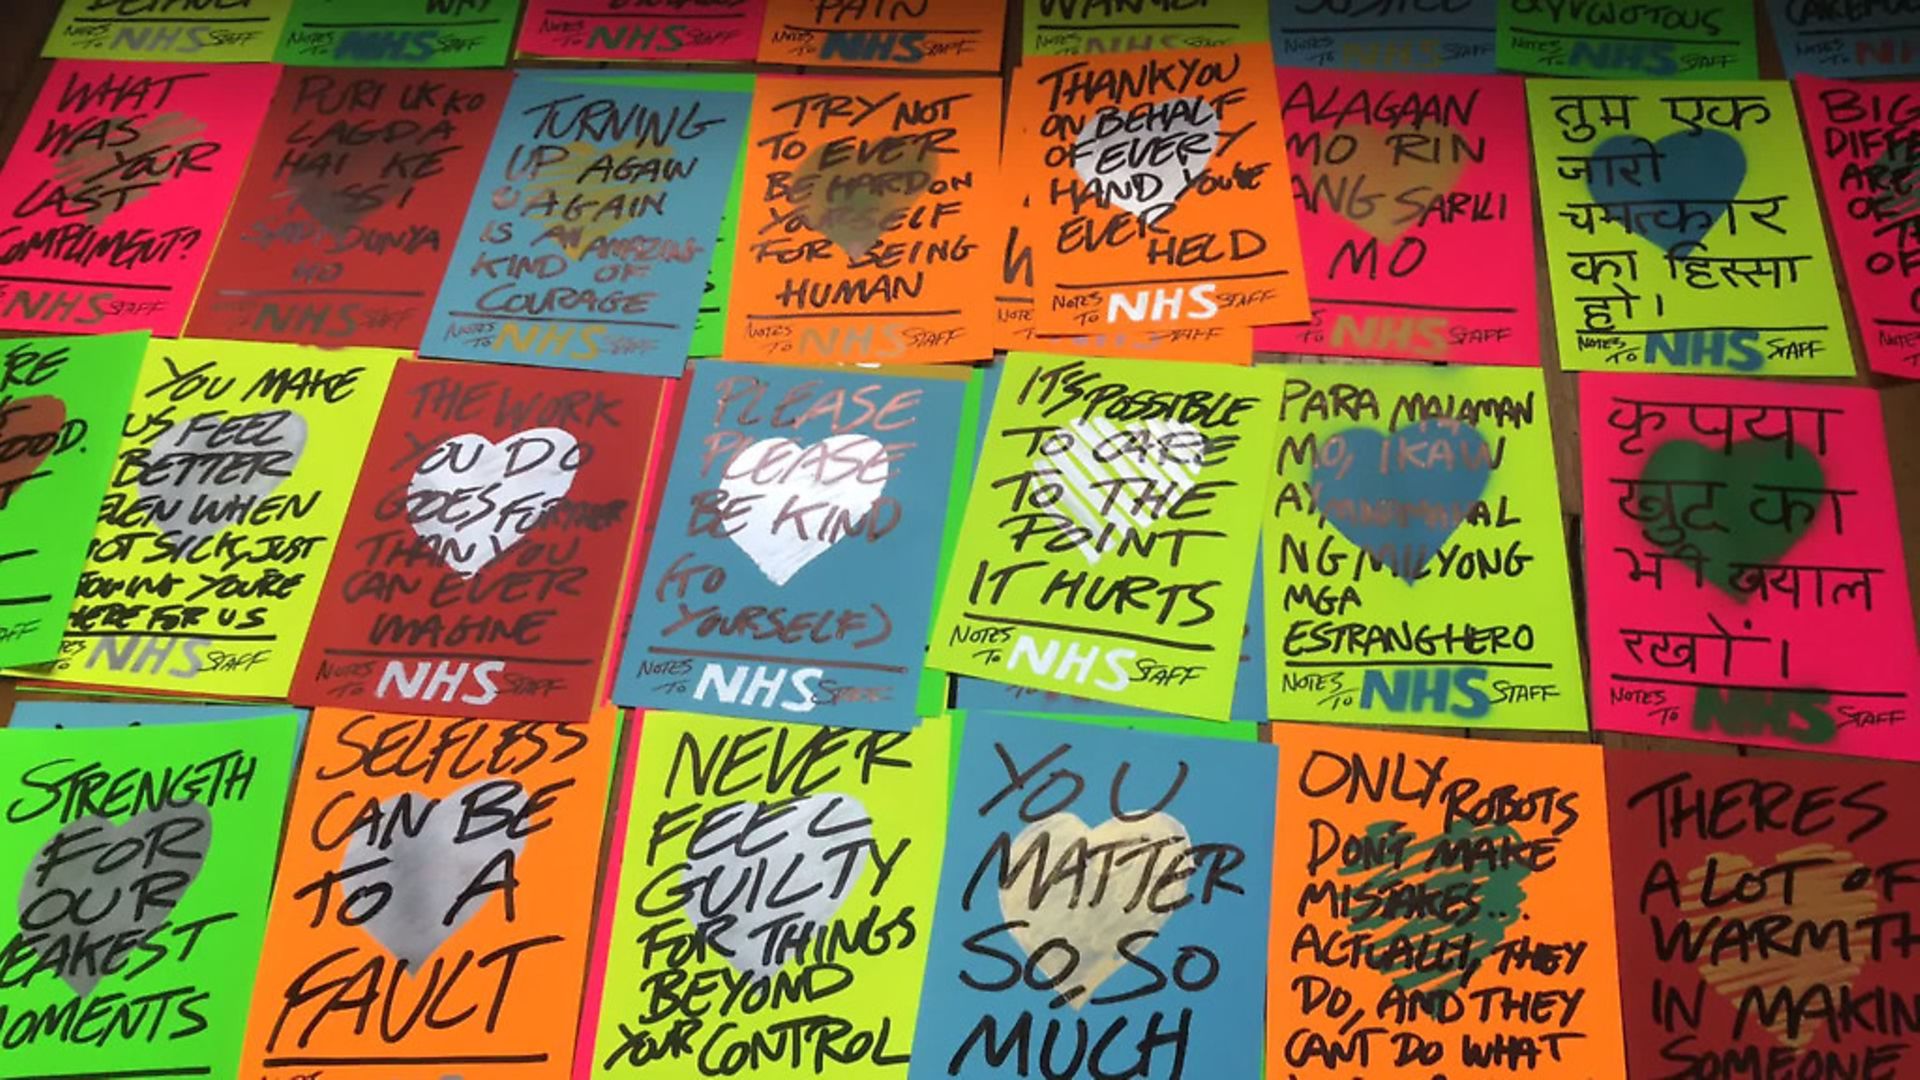 DEFAULT
NOTES TO NHS STAFF
WHY
NOTES TO NHS STAFF
NHS STAFF
PAIN
NOTES TO NHS STAFF
NOTES TO NHS STAFF
JUSTICE
NOTES TO NHS STAFF
NOTES TO NHS STAFF
NOTES TO
WHAT
WAS
YOUR
LAST
COMPLIMENT?
NHS STAFF
PURI UK KO
LAGDA
HAI KE
DUNYA
HO
NHS STAFF
TURNING
UP AGAIN
& AGAIN
IS AN AMAZING
KIND OF
COURAGE
NOTES TO NHS STAFF
TRY NOT
TO EVER
BE HARD ON
YOURSELF
FOR BEING
HUMAN
NOTES TO NHS STAFF
THANKYOU
ON BEHALF
OF EVERY
HAND YOU'VE
EVER
HELD
NOTES TO NHS STAFF
ALAGAAN
MO RIN
ANG SARILI
MO
TO NHS STAFF
तुम एक
जारी
चमत्कार
का हिस्सा
हो।
NOTES TO NHS STAFF
BIG
DIFFE
ARE
OF
OF
NOTES
RE
OOD.
YOU MAKE
US FEEL
BETTER
EVEN WHEN
NOT SICK, JUST
YOU'RE
HERE FOR US
NHS STAFF
THE WORK
YOU DO
GOES FURTHER
THAN YOU
CAN EVER
IMAGINE
NOTES TO NHS STAFF
PLEASE
PLEASE
BE KIND
(TO
YOURSELF)
NOTES TO NHS STAFF
IT'S POSSIBLE
TO CARE
TO THE
POINT
IT HURTS
NOTES TO NHS STAFF
PARA MALAMAN
MO, IKAW
AY MINAMAHAL
NG MILYONG
MGA
ESTRANGHERO
NOTES TO NHS STAFF
कृपया
खुद का
भी खयाल
रखों।
NOTES TO NHS STAFF
STRENGTH
FOR
OUR
EAKEST
MOMENTS
SELFLESS
CAN BE
TO A
FAULT
NEVER
FEEL
GUILTY
FOR THINGS
BEYOND
YOUR CONTROL
YOU
MATTER
SO, SO
MUCH
ONLY ROBOTS
DON'T MAKE
MISTAKES...
ACTUALLY, THEY
DO, AND THEY
CAN'T DO WHAT
THERES
A LOT OF
WARMTH
IN MAKIN
SOMEONE